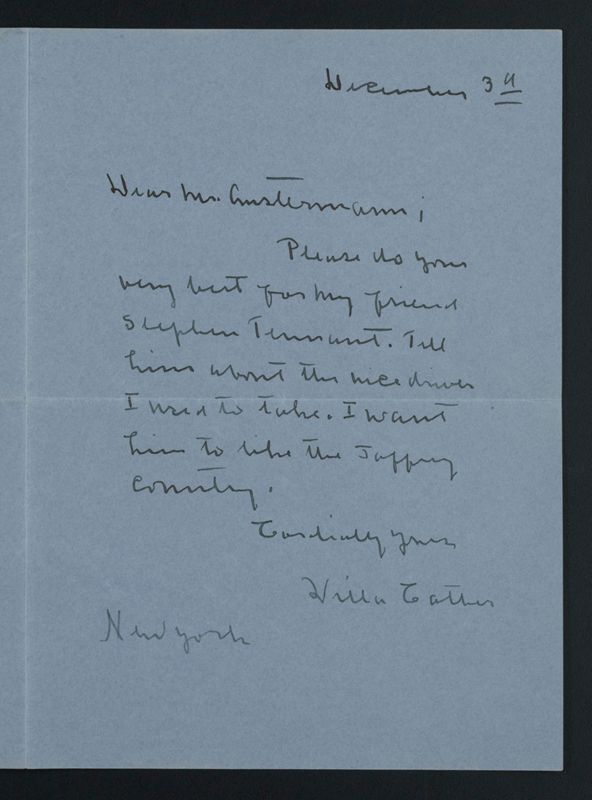 December 3d
Dear Mr. Austermann;
Please do your
very best for my friend
Stephen Tennant. Tell
him about the nice drives
I used to take. I want
him to like the Jaffrey
Country.
Cordially yours
Willa Cather
New York